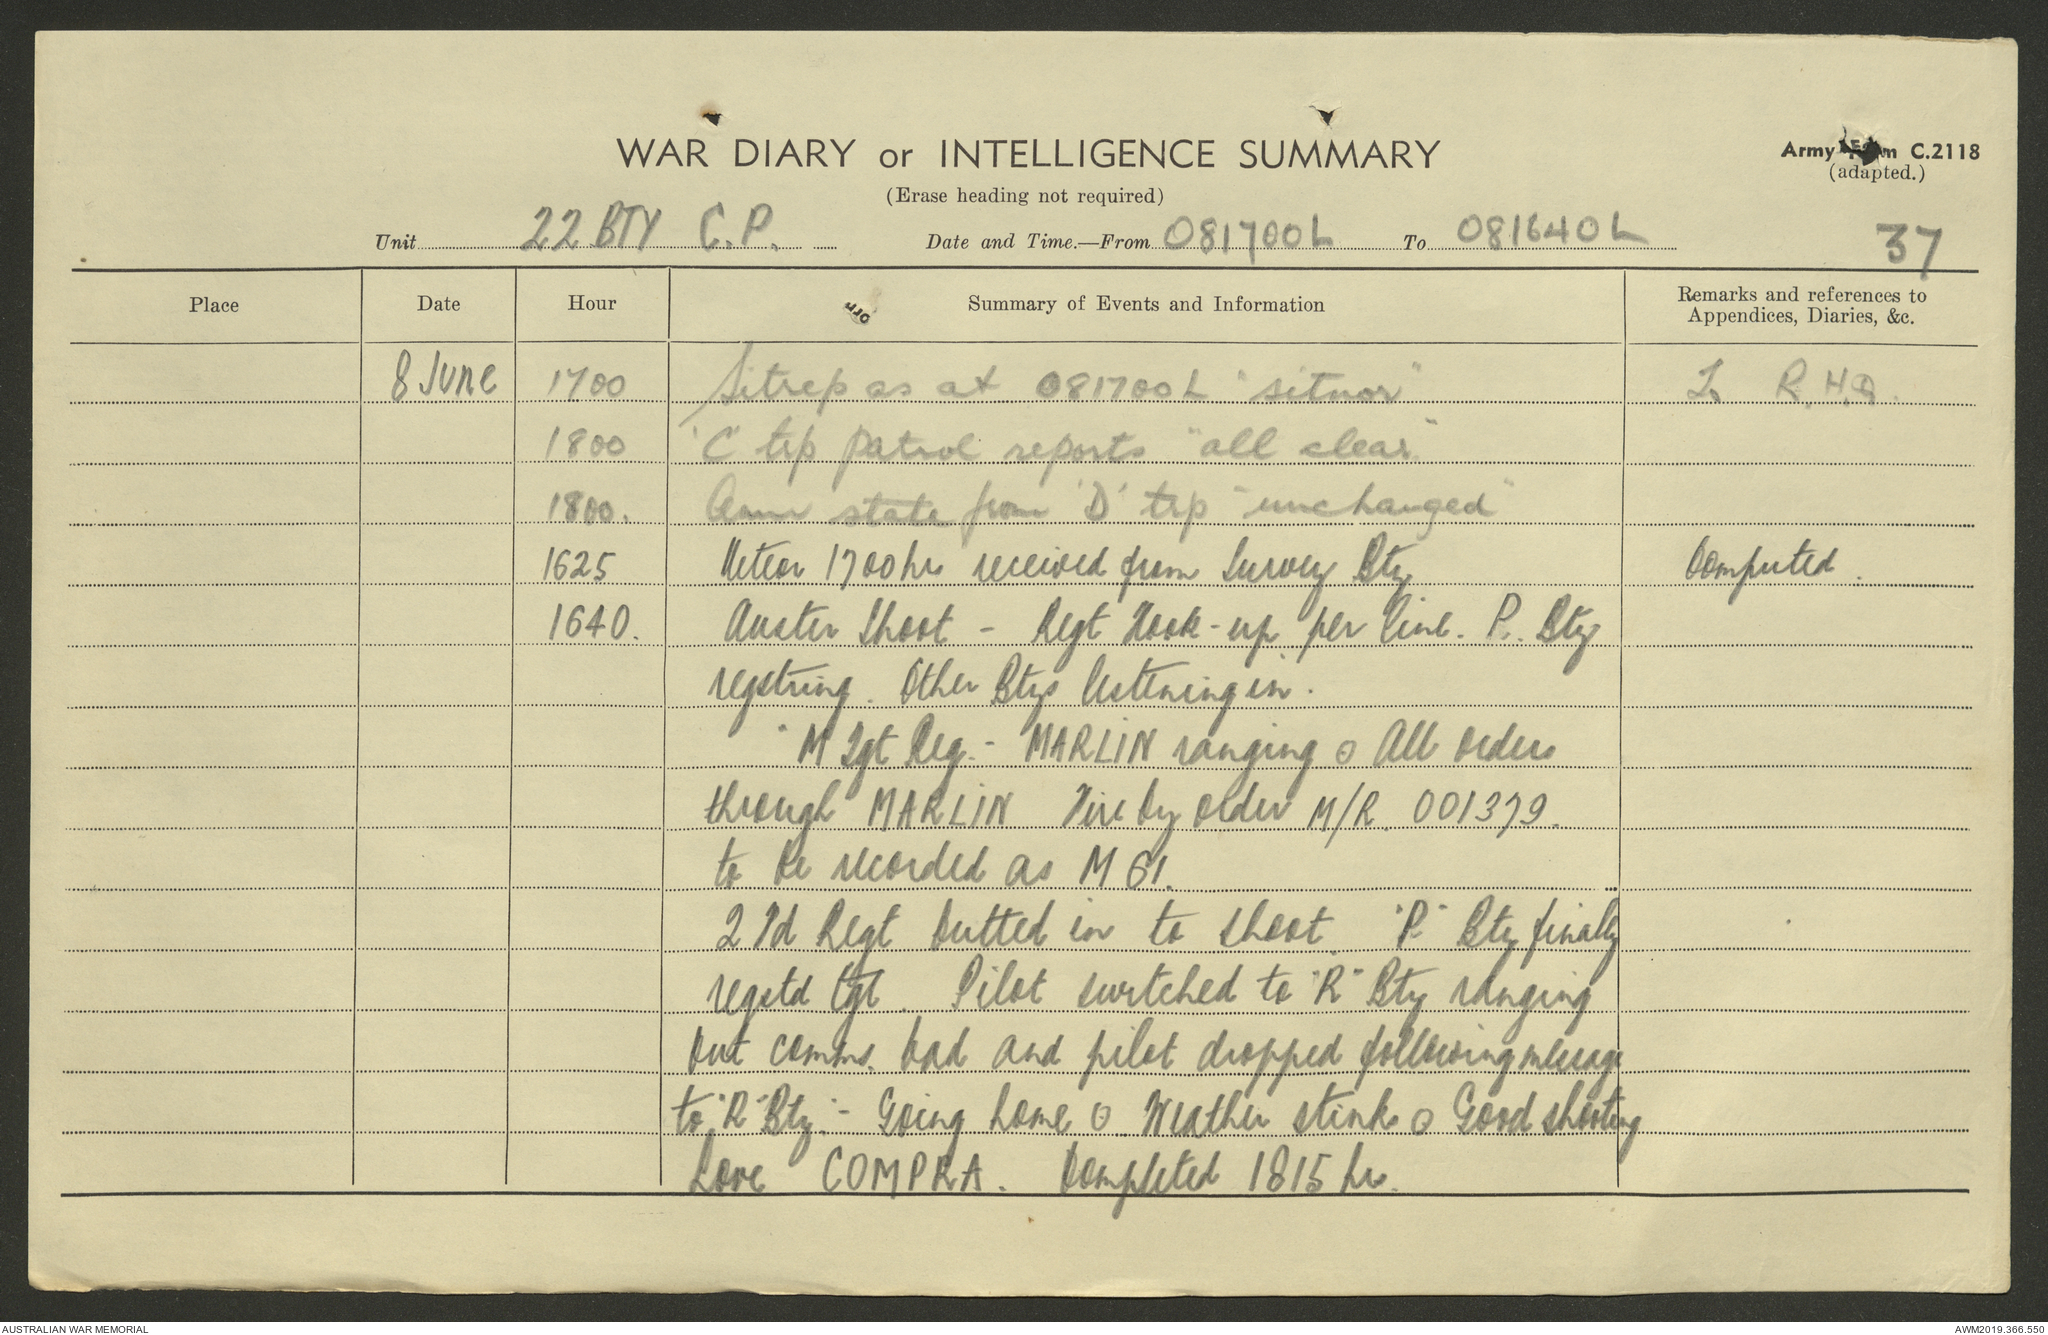 WAR DIARY or INTELLIGENCE SUMMARY
Army Form C.2118
(adapted.)
(Erase heading not required)
Unit 22 BTY C.P. Date and Time.—From 081700L To 081640L
37
Place Date Hour Summary of Events and Information Remarks and references to
Appendices, Diaries, &c.
8 June 1700 Sitrep as at 081700L "sitnor" To R.H.Q.
1800 'C' trp patrol reports "all clear"
1800. Amm state from 'D' trp "unchanged"
1625 Meteor 1700 hrs received from Survey Bty Computed.
1640. Auster Shoot - Regt Hook-up per line. P. Bty
regstring. Other Btys listening in.
"M Tgt Reg. - MARLIN ranging o All orders
through MARLIN Fire by order M/R 001379.
to be recorded as M61.
2 Fd Regt butted in to shoot. "P" Bty finally
regstd tgt. Pilot switched to "R" Bty ranging
but comms. bad and pilot dropped following message
to "R" Bty:- Going home o Weather stinks o Good shooting
Love COMPRA. Completed 1815 hrs.
AUSTRALIAN WAR MEMORIAL
AWM2019.366.550